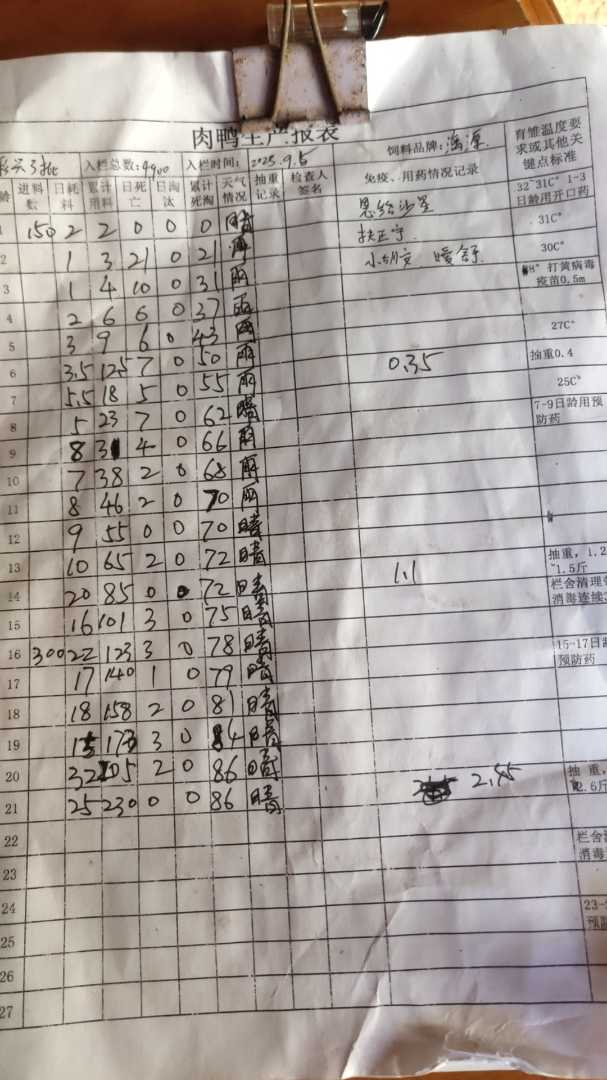 肉鸭生产报表
入栏总数:4900 入栏时间: 2025.9.5 饲料品牌: 育雏温度要求或其他关键点标准
龄 进料数 日耗料 累计用料 日死亡 日淘汰 累计死淘 天气情况 抽重记录 检查人签名 免疫、用药情况记录
1 150 2 2 0 0 0 晴 恩给沙星 32~31C° 1-3日龄用开口药
2 1 3 21 0 21 扶正宁 31C°
3 1 4 10 0 31 雨 30C°
4 2 6 6 0 37 雨 打黄病毒疫苗0.5m
5 3 9 6 0 43 雨 27C°
6 3.5 125 7 0 50 雨 0.35 抽重0.4
7 5.5 18 5 0 55 雨 25C°
8 5 23 7 0 62 晴 7-9日龄用预防药
9 8 31 4 0 66 雨
10 7 38 2 0 68 雨
11 8 46 2 0 70 雨
12 9 55 0 0 70 晴
13 10 65 2 0 72 晴 1.1 抽重,1.2~1.5斤
14 20 85 0 0 72 晴 栏舍清理 消毒连续
15 16 101 3 0 75 晴
16 300 22 123 3 0 78 晴 15-17日龄 预防药
17 17 140 1 0 79 晴
18 18 158 2 0 81 晴
19 15 173 3 0 84 晴
20 32 205 2 0 86 晴 2.45 抽重, 2.6斤
21 25 230 0 0 86 晴
22 栏舍 消毒
23
24 23- 预防
25
26
27